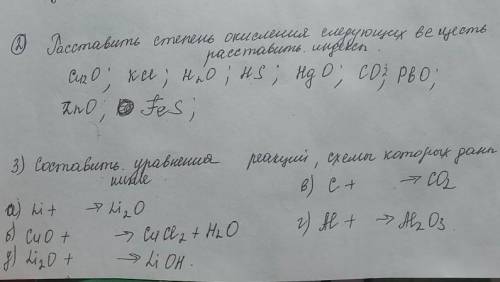 2 Расставить степень окисления следующих веществ
расставить. индексы.
Cu2O; KCl; HnO; HS; HgO; CO2; PBO;
ZnO; FeS;
3) Составить. уравнения реакций, схемы которых даны
ниже
в) C + → CO2
а) Li + → Li2O
б) CuO + → CuCl2 + H2O
г) Al + → Al2O3.
д) Li2O + → LiOH.